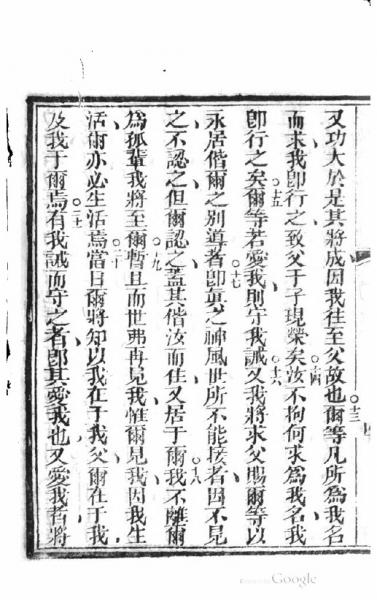 又功大於是其將成因我往至父故也○十三爾等凡所爲我名
而求我卽行之致父于子現榮矣○十四汝不拘何求爲我名我
卽行之矣○十五爾等若愛我則守我誡○十六又我將求父賜爾等以
永居偕爾之別導者○十七卽眞之神風世所不能接者因不見
之不認之但爾認之蓋其偕汝而住又居于爾○十八我不離爾
爲孤輩我將至爾○十九暫且而世弗再見我惟爾見我因我生
活爾亦必生活焉○二十當日爾將知以我在于我父爾在于我
及我于爾焉○二十一有我誡而守之者卽其愛我也又愛我者將
Google